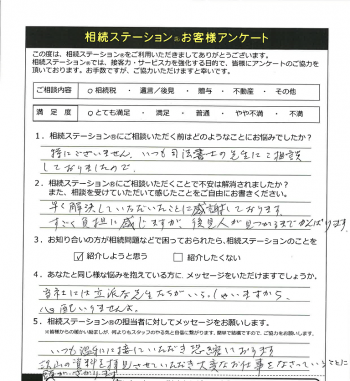 相続ステーション®お客様アンケート
この度は、相続ステーション®をご利用いただきましてありがとうございます。
相続ステーション®では、接客力・サービス力を強化する目的で、皆様にアンケートのご協力を
頂いております。お手数ですが、ご協力いただけますと幸いです。
ご相談内容 ○相続税 ・ 遺言／後見 ・ 贈与 ・ 不動産 ・ その他
満足度 ○とても満足 ・ 満足 ・ 普通 ・ やや不満 ・ 不満
1．相続ステーション®にご相談いただく前はどのようなことにお悩みでしたか？
特にございません。いつも司法書士の先生にご相談
しておりましたので。
2．相続ステーション®にご相談いただくことで不安は解消されましたか？
また、相談を受けていただいて感じたことをご自由にお書きください。
早く解決していただいたことに感謝しております。
すごく負担に感じますが、後見人が見つかるまでがんばります。
3．お知り合いの方が相続問題などで困っておられたら、相続ステーション®のことを
☑紹介しようと思う □紹介したくない
4．あなたと同じ様な悩みを抱えている方に、メッセージをいただけますでしょうか。
貴社には立派な先生たちがいらっしゃいますから、
心配いりませんよ。
5．相続ステーション®の担当者に対してメッセージをお願いします。
いつも温和に接していただき感謝しております
沢山の資料を拝見させていただき大変なお仕事をなさっていることに